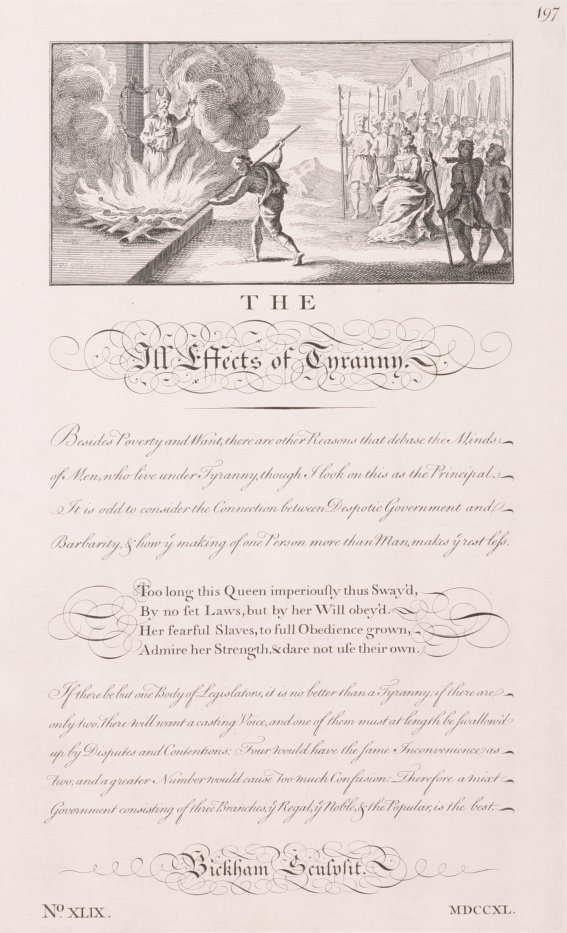 197
THE
Ill Effects of Tyranny.
Besides Poverty and Want, there are other Reasons that debase the Minds
of Men, who live under Tyranny, though I look on this as the Principal.
It is odd to consider the Connection between Despotic Government and
Barbarity, & how ÿ making of one Person more than Man, makes ÿ rest less.
Too long this Queen imperiously thus Sway'd,
By no set Laws, but by her Will obey'd.
Her fearful Slaves, to full Obedience grown,
Admire her Strength, & dare not use their own.
If there be but one Body of Legislators, it is no better than a Tyranny; if there are
only two, there will want a casting Voice, and one of them must at length be swallow'd
up by Disputes and Contentions: Four would have the same Inconvenience as
two, and a greater Number would cause too much Confusion: Therefore a mixt
Government consisting of three Branches, ÿ Regal, ÿ Noble, & the Popular, is the best.
Bickham Sculpsit.
No. XLIX.
MDCCXL.